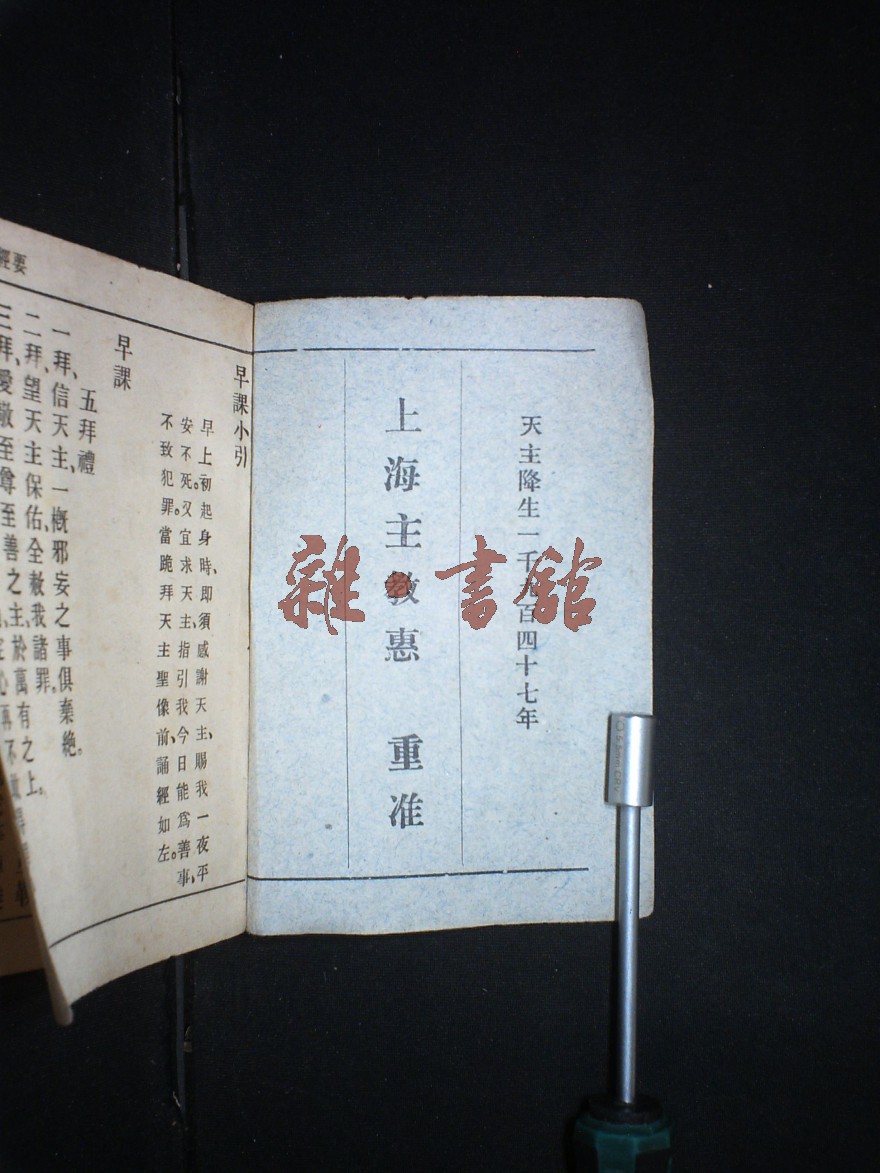 天主降生一千九百四十七年
上海主教惠　重准
雜書館
早課小引
早上初起身時、卽須感謝天主、賜我一夜平
安不死。又宜求天主、指引我今日能爲善事、
不致犯罪。當跪拜天主聖像前、誦經如左。
早課
五拜禮
一拜、信天主、一槪邪妄之事俱棄絶。
二拜、望天主保佑、全赦我諸罪。
三拜、愛敬至尊至善之主、於萬有之上。
經要